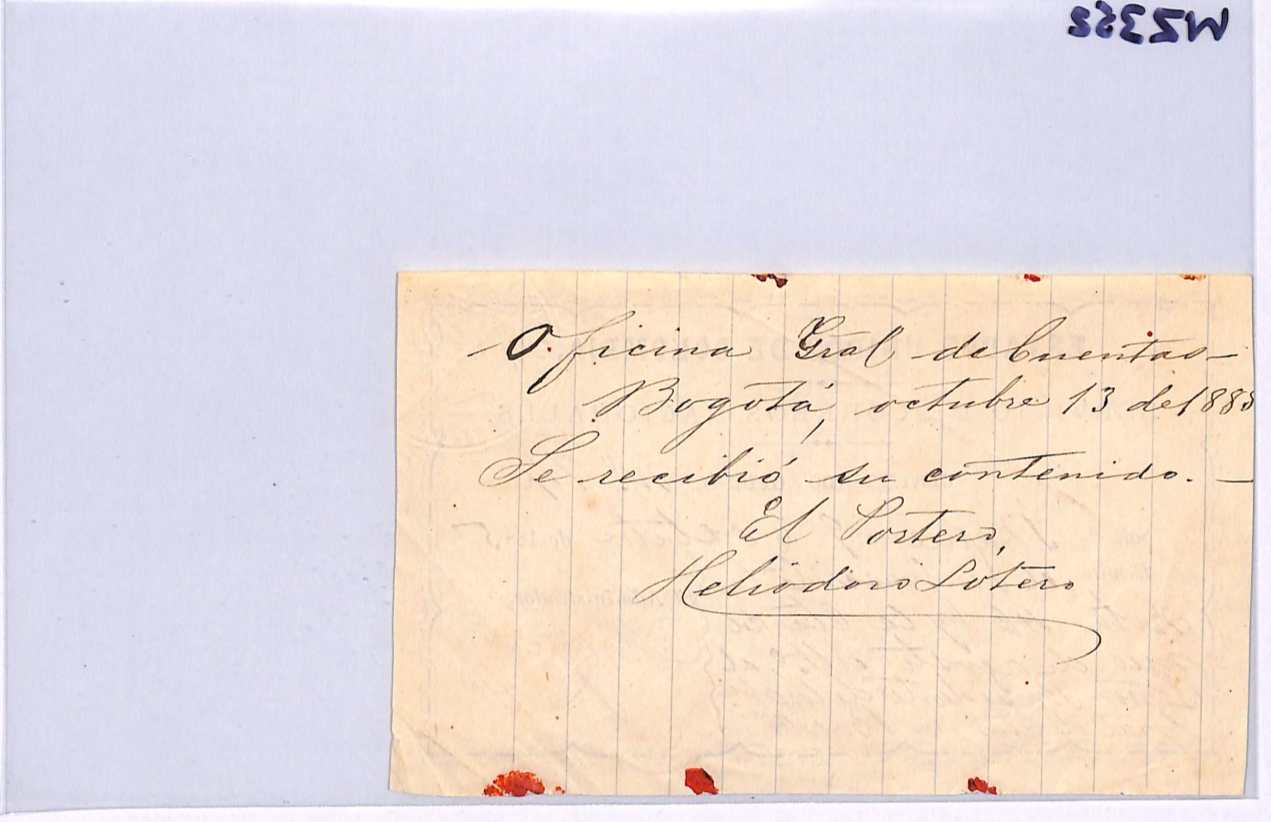 MZ353
Oficina Gral de Cuentas—
Bogotá, octubre 13 de 1888
Se recibió su contenido.—
El Portero,
Heliodoro Lotero